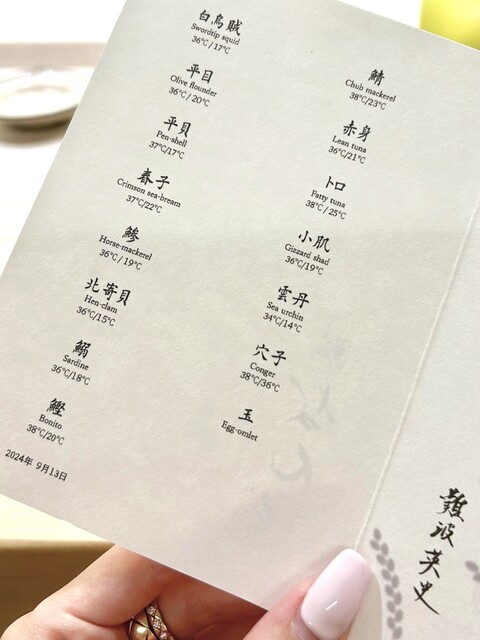 白烏賊
Swordtip squid
36℃/17℃
平目
Olive flounder
36℃/20℃
平貝
Pen-shell
37℃/17℃
春子
Crimson sea-bream
37℃/22℃
鯵
Horse-mackerel
36℃/19℃
北寄貝
Hen-clam
36℃/15℃
鰯
Sardine
36℃/18℃
鰹
Bonito
38℃/20℃
2024年 9月13日
鯖
Chub mackerel
38℃/23℃
赤身
Lean tuna
36℃/21℃
トロ
Fatty tuna
38℃/25℃
小肌
Gizzard shad
36℃/19℃
雲丹
Sea urchin
34℃/14℃
穴子
Conger
38℃/36℃
玉
Egg-omlet
難波英史